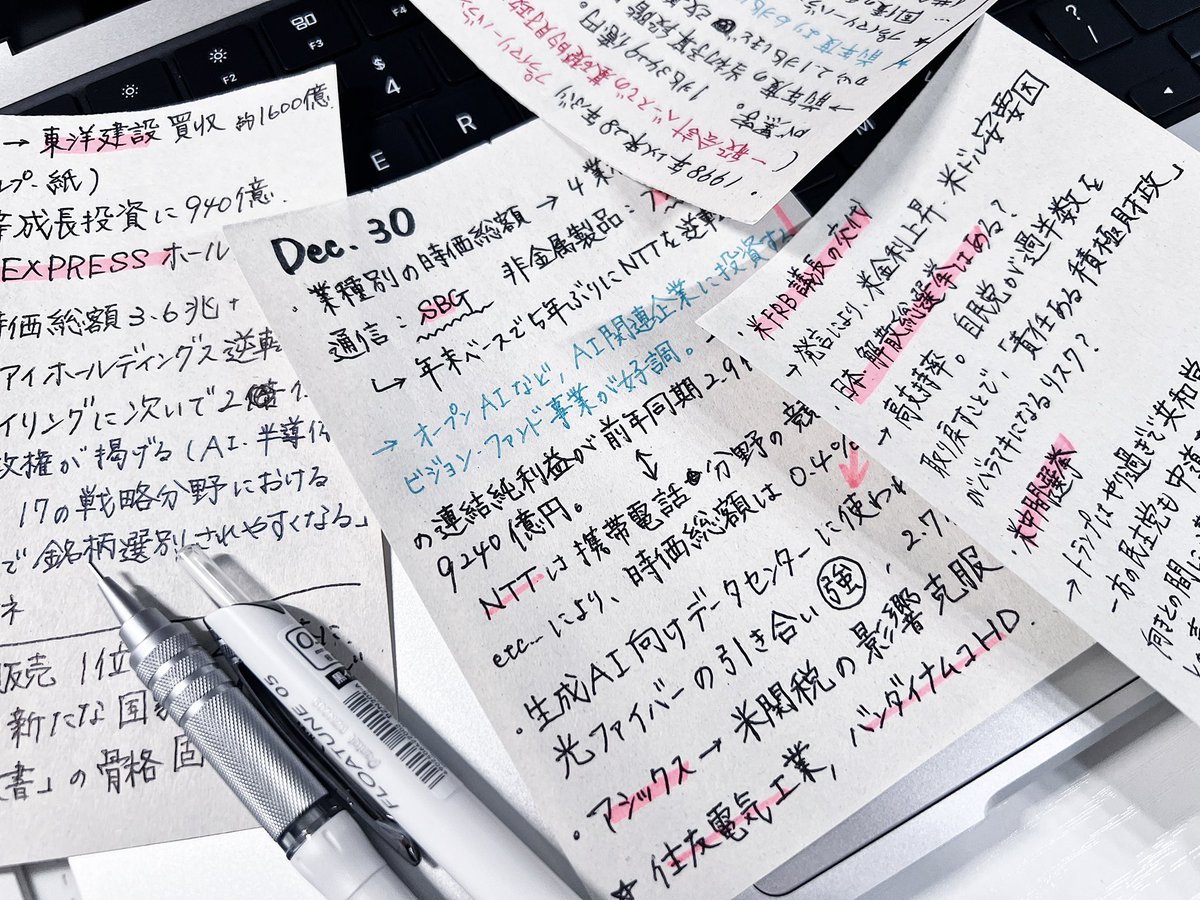 → 東洋建設 買収 約1600億
紙)
成長投資に940億.
EXPRESS ホール
時価総額3.6兆+
アイホールディングス逆転
イリングに次いで2
政権が掲げる(AI・半導
17の戦略分野における
で銘柄選別されやすくなる」
ネ
販売 1位
新たな国
書」の骨格固
Dec. 30
・業種別の時価総額 → 4業
通信:SBG 非金属製品:
↳ 年末ベースで5年ぶりにNTTを逆転
→ オープンAIなど、AI関連企業に投資する
ビジョン・ファンド事業が好調。
の連結純利益が前年同期2.9
9240億円。
NTTは携帯電話分野の競
etc…により、時価総額は0.4%
・生成AI向けデータセンターに使われ
光ファイバーの引き合い 強. 2.7.
・アシックス → 米関税の影響克服
★住友電気工業, バンダイナムコHD.
・1998年以来28年ぶり
(一般会計ベースでの基礎的財政
プライマリーバラン
黒字。
1兆3429億円。
→ 前年度の当初予算段階
・米FRB議長の交代
米ドル安要因
→ 発言により、米金利上昇・
・日本・解散総選挙はある?
→ 高支持率。自民党が過半数を
取り戻すことで、「責任ある積極財政」
がバラマキになるリスク?
・米中間選挙
→ トランプはやり過ぎで共和党
一方の民主党も中道
向きとの間に
FLOATUNE 05
F2
F3
F4
$
4
E
R
M
?